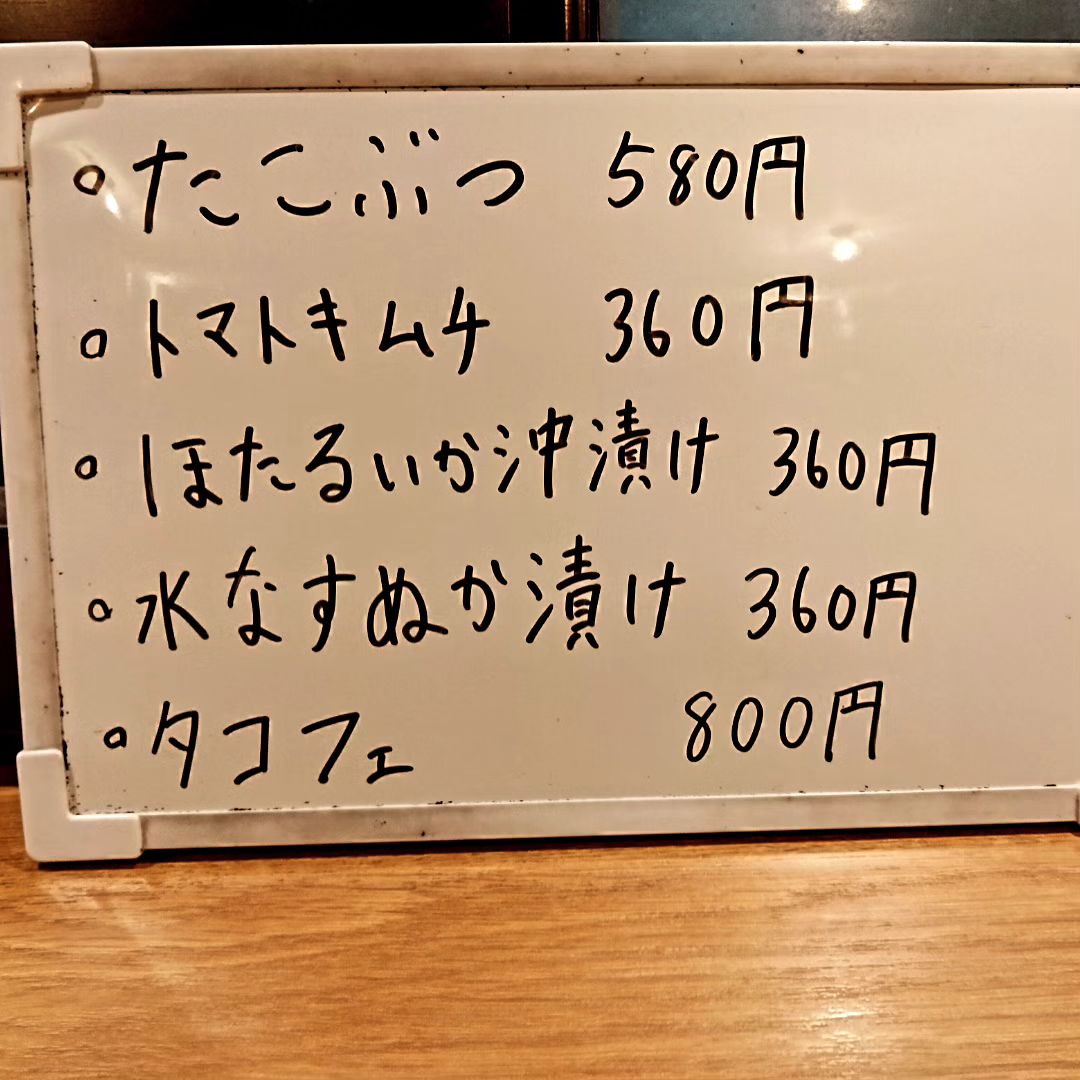 。たこぶつ 580円
。トマトキムチ 360円
。ほたるいか沖漬け 360円
。水なすぬか漬け 360円
。タコフェ 800円